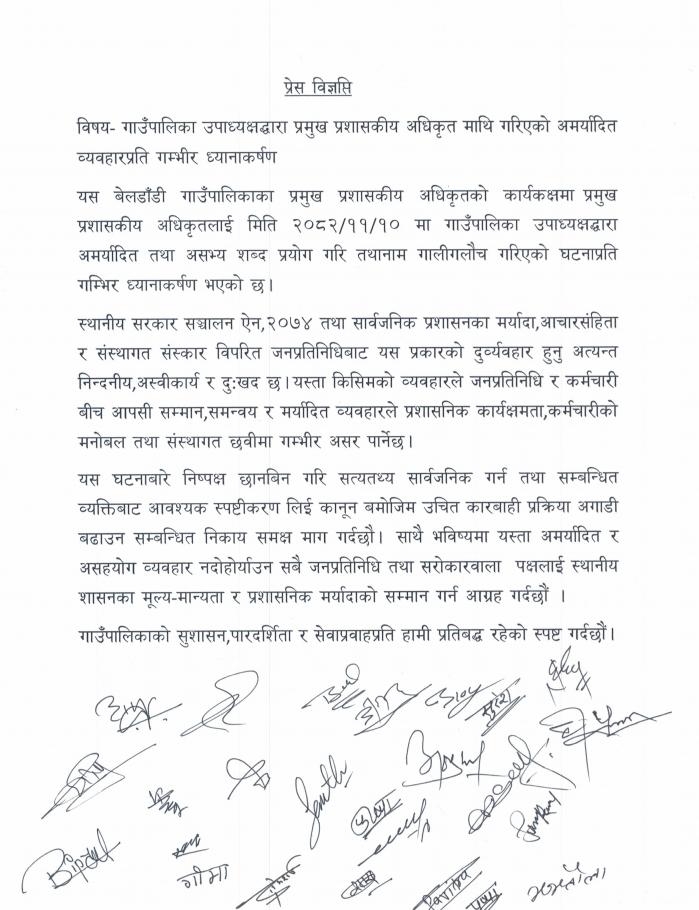 प्रेस विज्ञप्ति
विषय- गाउँपालिका उपाध्यक्षद्धारा प्रमुख प्रशासकीय अधिकृत माथि गरिएको अमर्यादित
व्यवहारप्रति गम्भीर ध्यानाकर्षण
यस बेलडाँडी गाउँपालिकाका प्रमुख प्रशासकीय अधिकृतको कार्यकक्षमा प्रमुख
प्रशासकीय अधिकृतलाई मिति २०८२/११/१० मा गाउँपालिका उपाध्यक्षद्धारा
अमर्यादित तथा असभ्य शब्द प्रयोग गरि तथानाम गालीगलौच गरिएको घटनाप्रति
गम्भिर ध्यानाकर्षण भएको छ।
स्थानीय सरकार सञ्चालन ऐन,२०७४ तथा सार्वजनिक प्रशासनका मर्यादा,आचारसंहिता
र संस्थागत संस्कार विपरित जनप्रतिनिधिबाट यस प्रकारको दुर्व्यवहार हुनु अत्यन्त
निन्दनीय,अस्वीकार्य र दुःखद छ।यस्ता किसिमको व्यवहारले जनप्रतिनिधि र कर्मचारी
बीच आपसी सम्मान,समन्वय र मर्यादित व्यवहारले प्रशासनिक कार्यक्षमता,कर्मचारीको
मनोबल तथा संस्थागत छवीमा गम्भीर असर पार्नेछ।
यस घटनाबारे निष्पक्ष छानबिन गरि सत्यतथ्य सार्वजनिक गर्न तथा सम्बन्धित
व्यक्तिबाट आवश्यक स्पष्टीकरण लिई कानून बमोजिम उचित कारबाही प्रक्रिया अगाडी
बढाउन सम्बन्धित निकाय समक्ष माग गर्दछौ। साथै भविष्यमा यस्ता अमर्यादित र
असहयोग व्यवहार नदोहोर्याउन सबै जनप्रतिनिधि तथा सरोकारवाला पक्षलाई स्थानीय
शासनका मूल्य-मान्यता र प्रशासनिक मर्यादाको सम्मान गर्न आग्रह गर्दछौं ।
गाउँपालिकाको सुशासन,पारदर्शिता र सेवाप्रवाहप्रति हामी प्रतिबद्ध रहेको स्पष्ट गर्दछौं।
गीमा